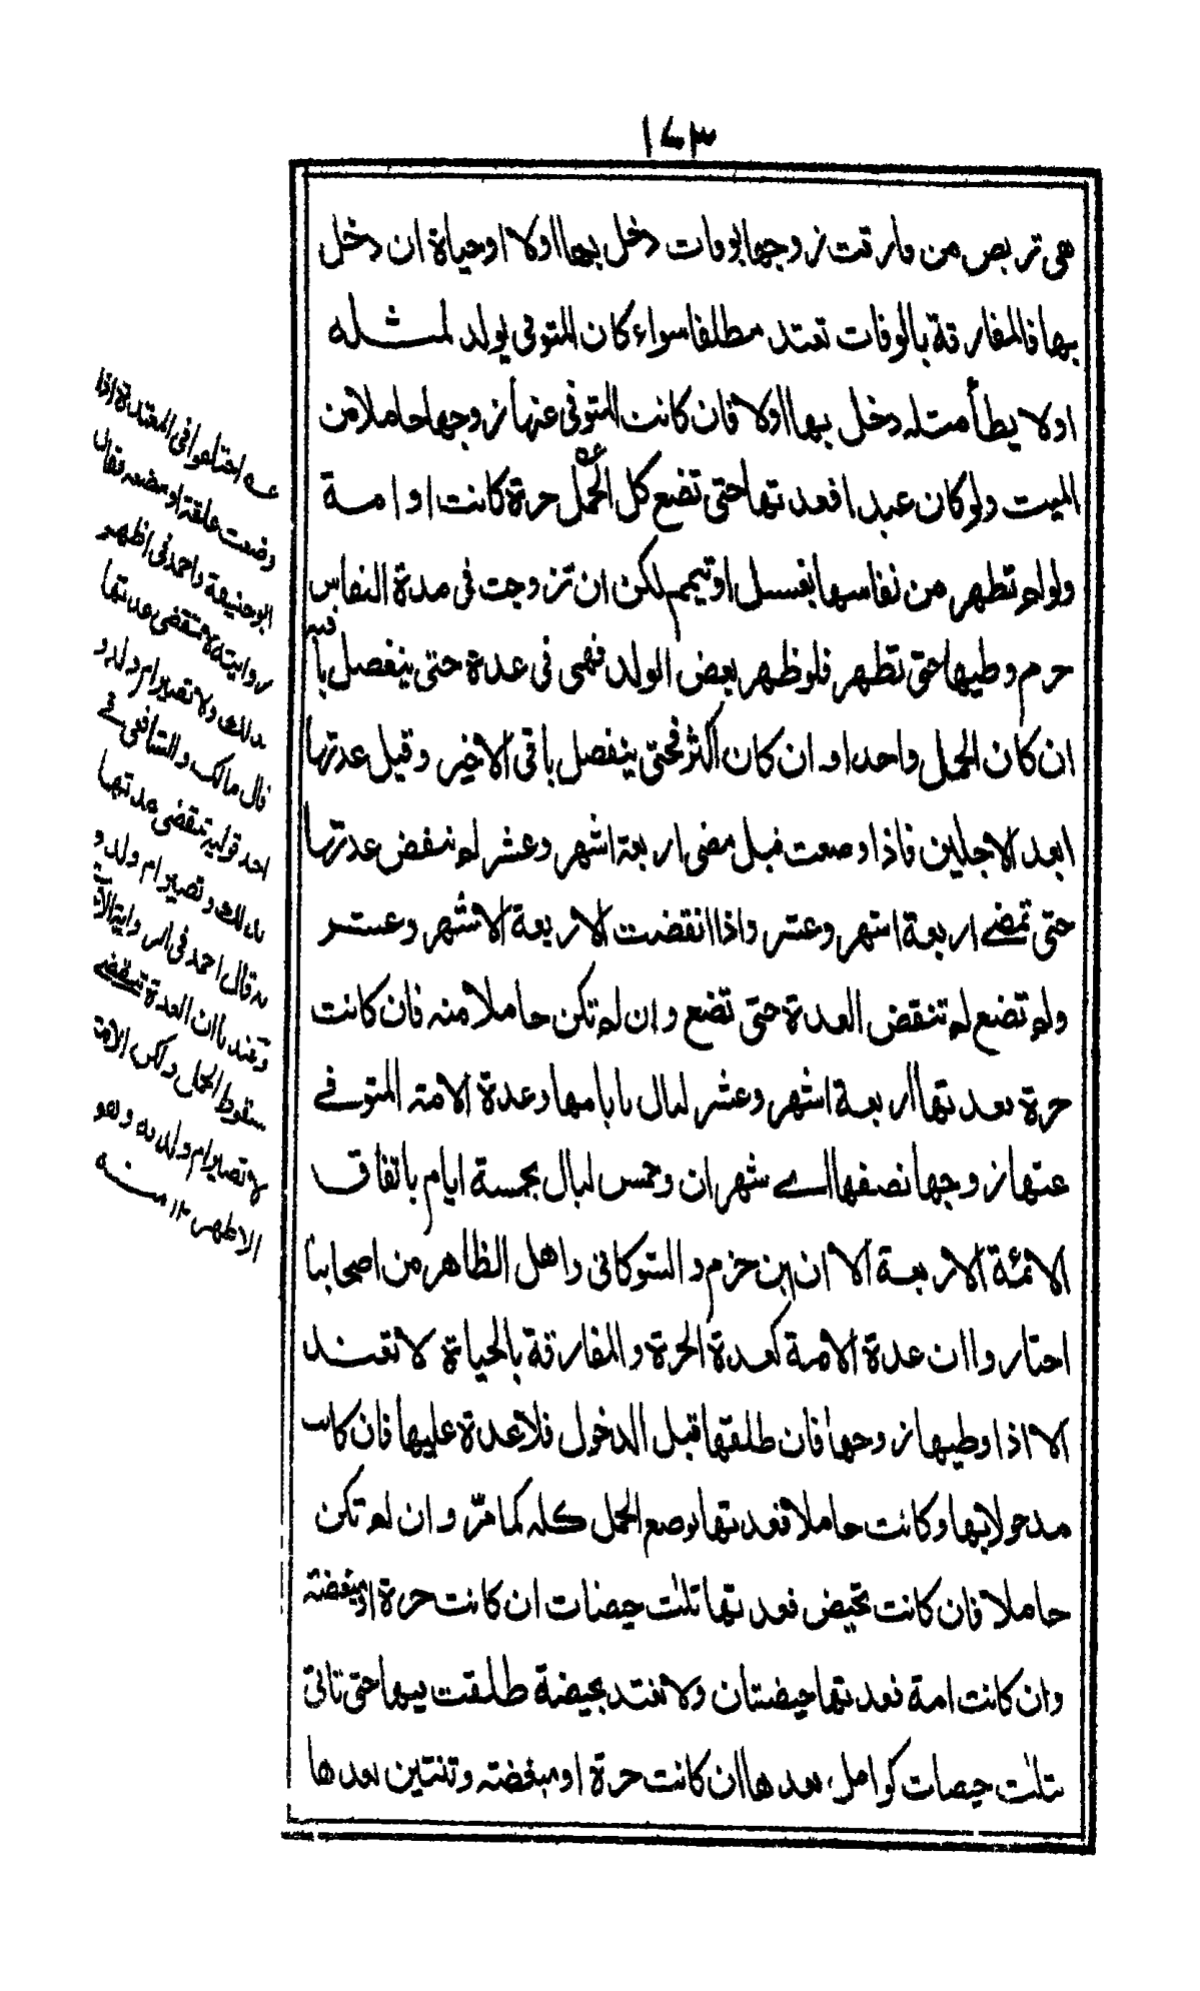 ١٧٣
هى تربص من فارقت زوجها بوفات دخل بها اولا اوحياة ان دخل
بها فالمفارقة بالوفات تعتد مطلقا سواء كان المتوفى يولد لمثله
اولا يطأ مثله دخل بها اولا فان كانت المتوفى عنها زوجها حاملا من
الميت ولو كان عبدا فعدتها حتى تضع كل الحمل حرة كانت او امة
ولو لم تطهر من نفاسها بغسل او تيمم لكن ان تزوجت فى مدة النفاس
حرم وطيها حتى تطهر فلو ظهر بعض الولد فهى فى عدة حتى ينفصل باقيه
ان كان الحمل واحدا و ان كان اكثر فحتى ينفصل باقى الاخير وقيل عدتها
ابعد الاجلين فاذا وضعت قبل مضى اربعة اشهر وعشر لم تنقض عدتها
حتى تمضے اربعة اشهر وعشر واذا انقضت الاربعة الاشهر وعشر
ولم تضع لم تنقض العدة حتى تضع و ان لم تكن حاملا منه فان كانت
حرة فعدتها اربعة اشهر وعشر ليال بايامها وعدة الامته المتوفے
عنها زوجها نصفها اے شهران وخمس ليال بخمسة ايام باتفاق
الائمة الاربعة الا ان ابن حزم و الشوكانى واهل الظاهر من اصحابنا
اختاروا ان عدة الامة كعدة الحرة والمفارقة بالحياة لا تعتد
الا اذا وطيها زوجها فان طلقها قبل الدخول فلا عدة عليها فان كانت
مدخولا بها وكانت حاملا فعدتها بوضع الحمل كله كما مرّ وان لم تكن
حاملا فان كانت تحيض فعدتها ثلث حيضات ان كانت حرة او مبعضته
وان كانت امة فعدتها حيضتان ولا تعتد بحيضة طلقت فيها حتى تاتى
بثلث حيضات كوامل بعدها ان كانت حرة او مبعضته وثنتين بعدها
عه اختلفوا فى المعتدة اذا
وضعت علقة او مضغه فقال
ابو حنيفة واحمد فى اظهر
روايته لا تنقضى عدتها
بذلك ولا تصير ام ولد و
قال مالك والشافعى فے
احد قوليه تنقضى عدتها
بذلك وتصير ام ولد و
به قال احمد فى الرواية
وعندنا ان العدة تنقضے
سقوط الحمل ولكن الامة
لا تصير ام ولد به وهو
الاظهر ١٢ منه